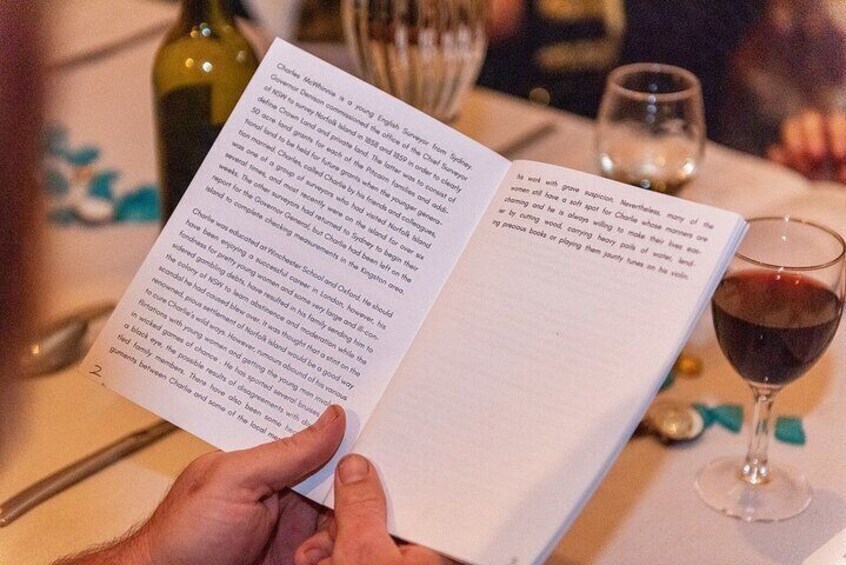 Charles McWhinnie is a young English Surveyor from Sydney.
Governor Denison commissioned the office of the Chief Surveyor
of NSW to survey Norfolk Island in 1858 and 1859 in order to clearly
define Crown Land and private land. The latter was to consist of
50 acre land grants for each of the Pitcairn families and addi-
tional land to be held for future grants when the younger genera-
tion married. Charles, called Charlie by his friends and colleagues,
was one of a group of surveyors who had visited Norfolk Island
several times, and most recently were on the island for over six
weeks. The other surveyors had returned to Sydney to begin their
report for the Governor General, but Charlie had been left on the
island to complete checking measurements in the Kingston area.
Charlie was educated at Winchester School and Oxford. He should
have been enjoying a successful career in London, however, his
fondness for pretty young women and some very large and ill-con-
sidered gambling debts, have resulted in his family sending him to
the colony of NSW to learn abstinence and moderation while the
scandal he had caused blew over. It was thought that a stint on the
renowned, pious settlement of Norfolk Island would be a good way
to cure Charlie's wild ways. However, rumours abound of his various
flirtations with young women and getting the young men
in wicked games of chance. He has sported several bruises
a black eye, the possible results of disagreements with
fied family members. There have also been some
guments between Charlie and some of the local
2
his work with grave suspicion. Nevertheless, many of the
women still have a soft spot for Charlie whose manners are
charming and he is always willing to make their lives eas-
ier by cutting wood, carrying heavy pails of water, lend-
ing precious books or playing them jaunty tunes on his violin.